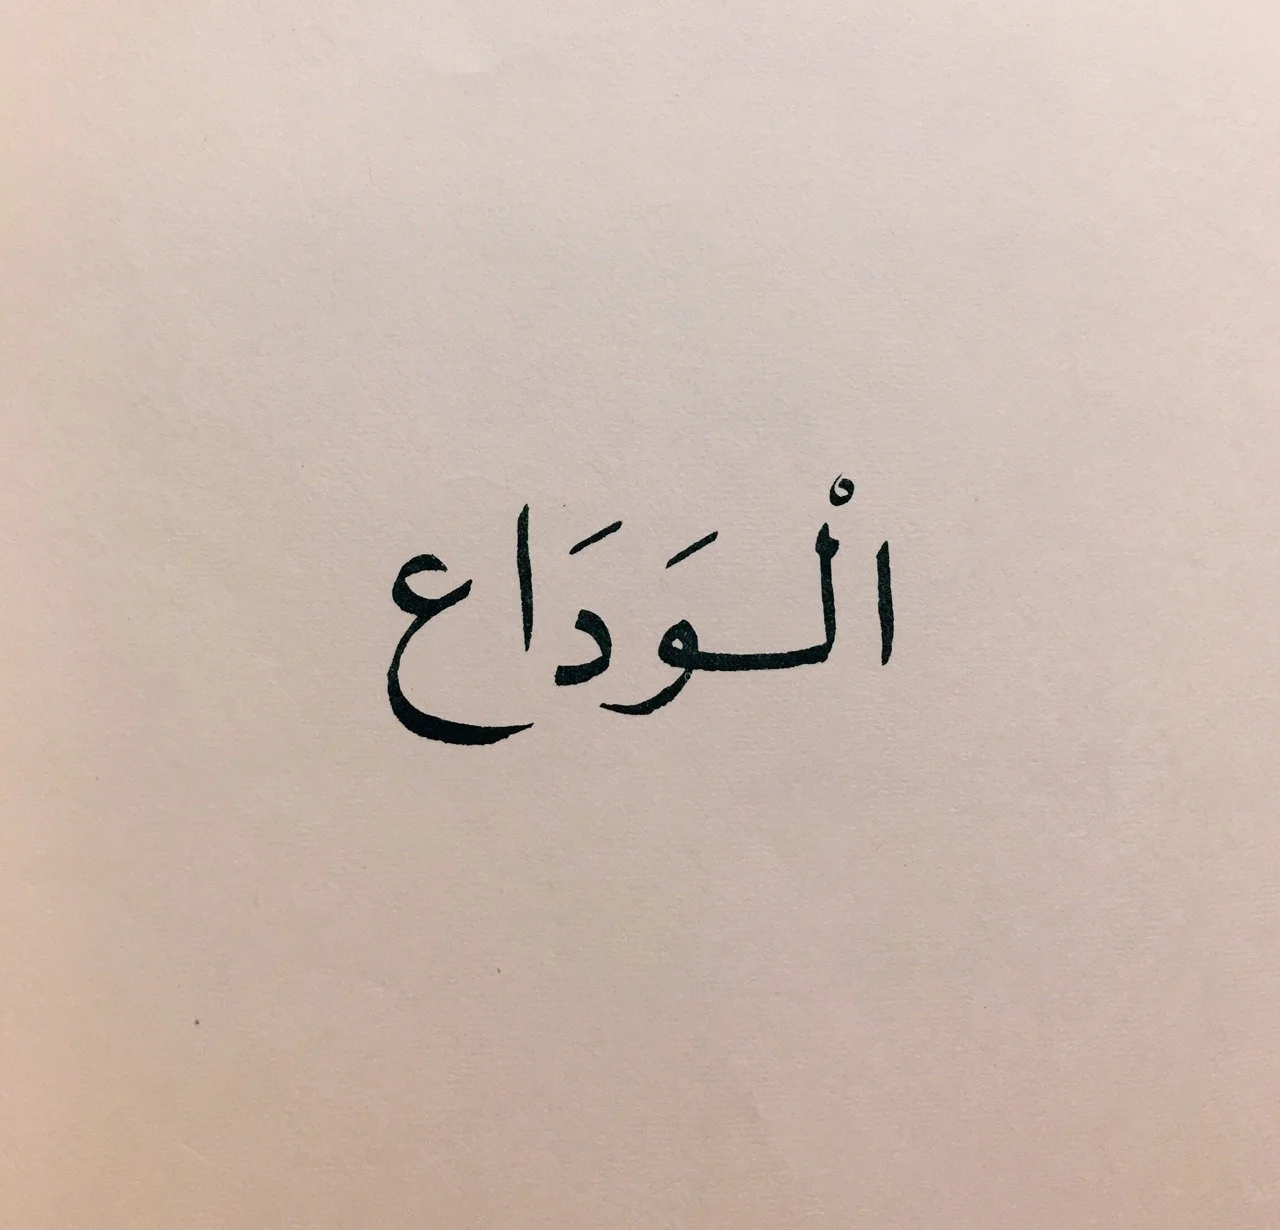 الْوَدَاع